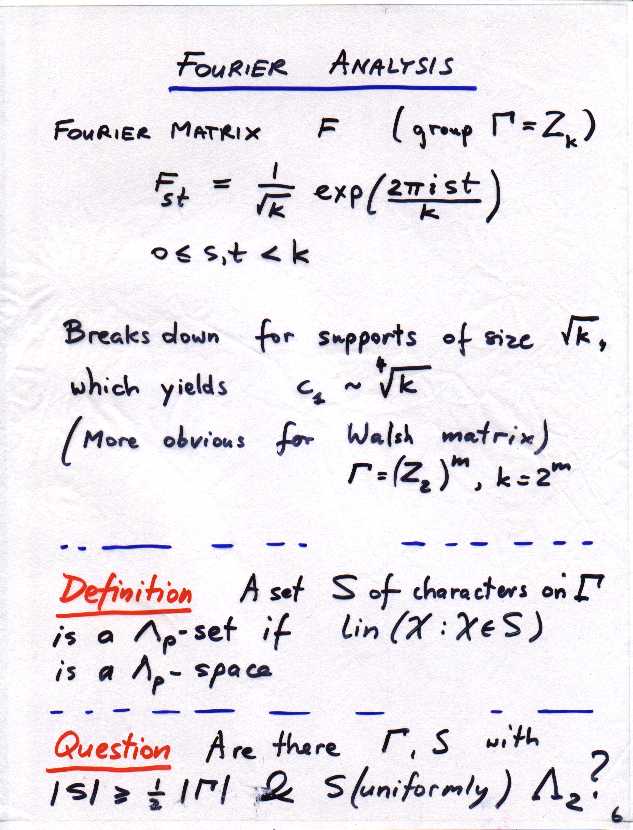 FOURIER ANALYSIS
FOURIER MATRIX F (group Γ = Z_k)
F_st = 1/√k exp(2πist/k)
0 ≤ s,t < k
Breaks down for supports of size √k,
which yields c_1 ~ ∜k
(More obvious for Walsh matrix)
Γ = (Z_2)^m, k = 2^m
Definition A set S of characters on Γ
is a Λ_p-set if Lin (χ : χ ∈ S)
is a Λ_p-space
Question Are there Γ, S with
|S| ≥ 1/2 |Γ| & S (uniformly) Λ_2?
6